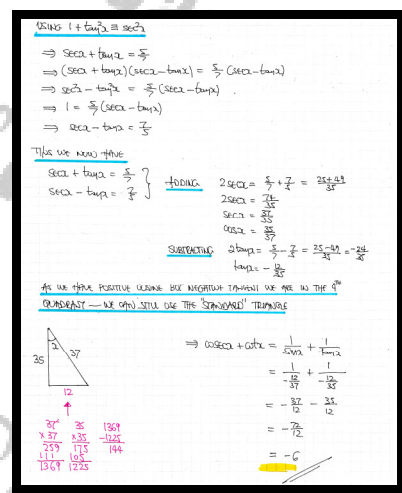 USING 1 + tan²x ≡ sec²x
⇒ secx + tanx = 5/7
⇒ (secx + tanx)(secx - tanx) = 5/7 (secx - tanx)
⇒ sec²x - tan²x = 5/7 (secx - tanx)
⇒ 1 = 5/7 (secx - tanx)
⇒ secx - tanx = 7/5
THUS WE NOW HAVE
secx + tanx = 5/7
secx - tanx = 7/5
ADDING 2secx = 5/7 + 7/5 = 25+49/35
2secx = 74/35
secx = 37/35
cosx = 35/37
SUBTRACTING 2tanx = 5/7 - 7/5 = 25-49/35 = -24/35
tanx = -12/35
AS WE HAVE POSITIVE COSINE BUT NEGATIVE TANGENT WE ARE IN THE 4TH
QUADRANT — WE CAN STILL USE THE "STANDARD" TRIANGLE
x
35 37
12
37² 35 1369
×37 ×35 -1225
259 175 144
111 105
1369 1225
⇒ cosecx + cotx = 1/sinx + 1/tanx
= 1/-12/37 + 1/-12/35
= -37/12 - 35/12
= -72/12
= -6